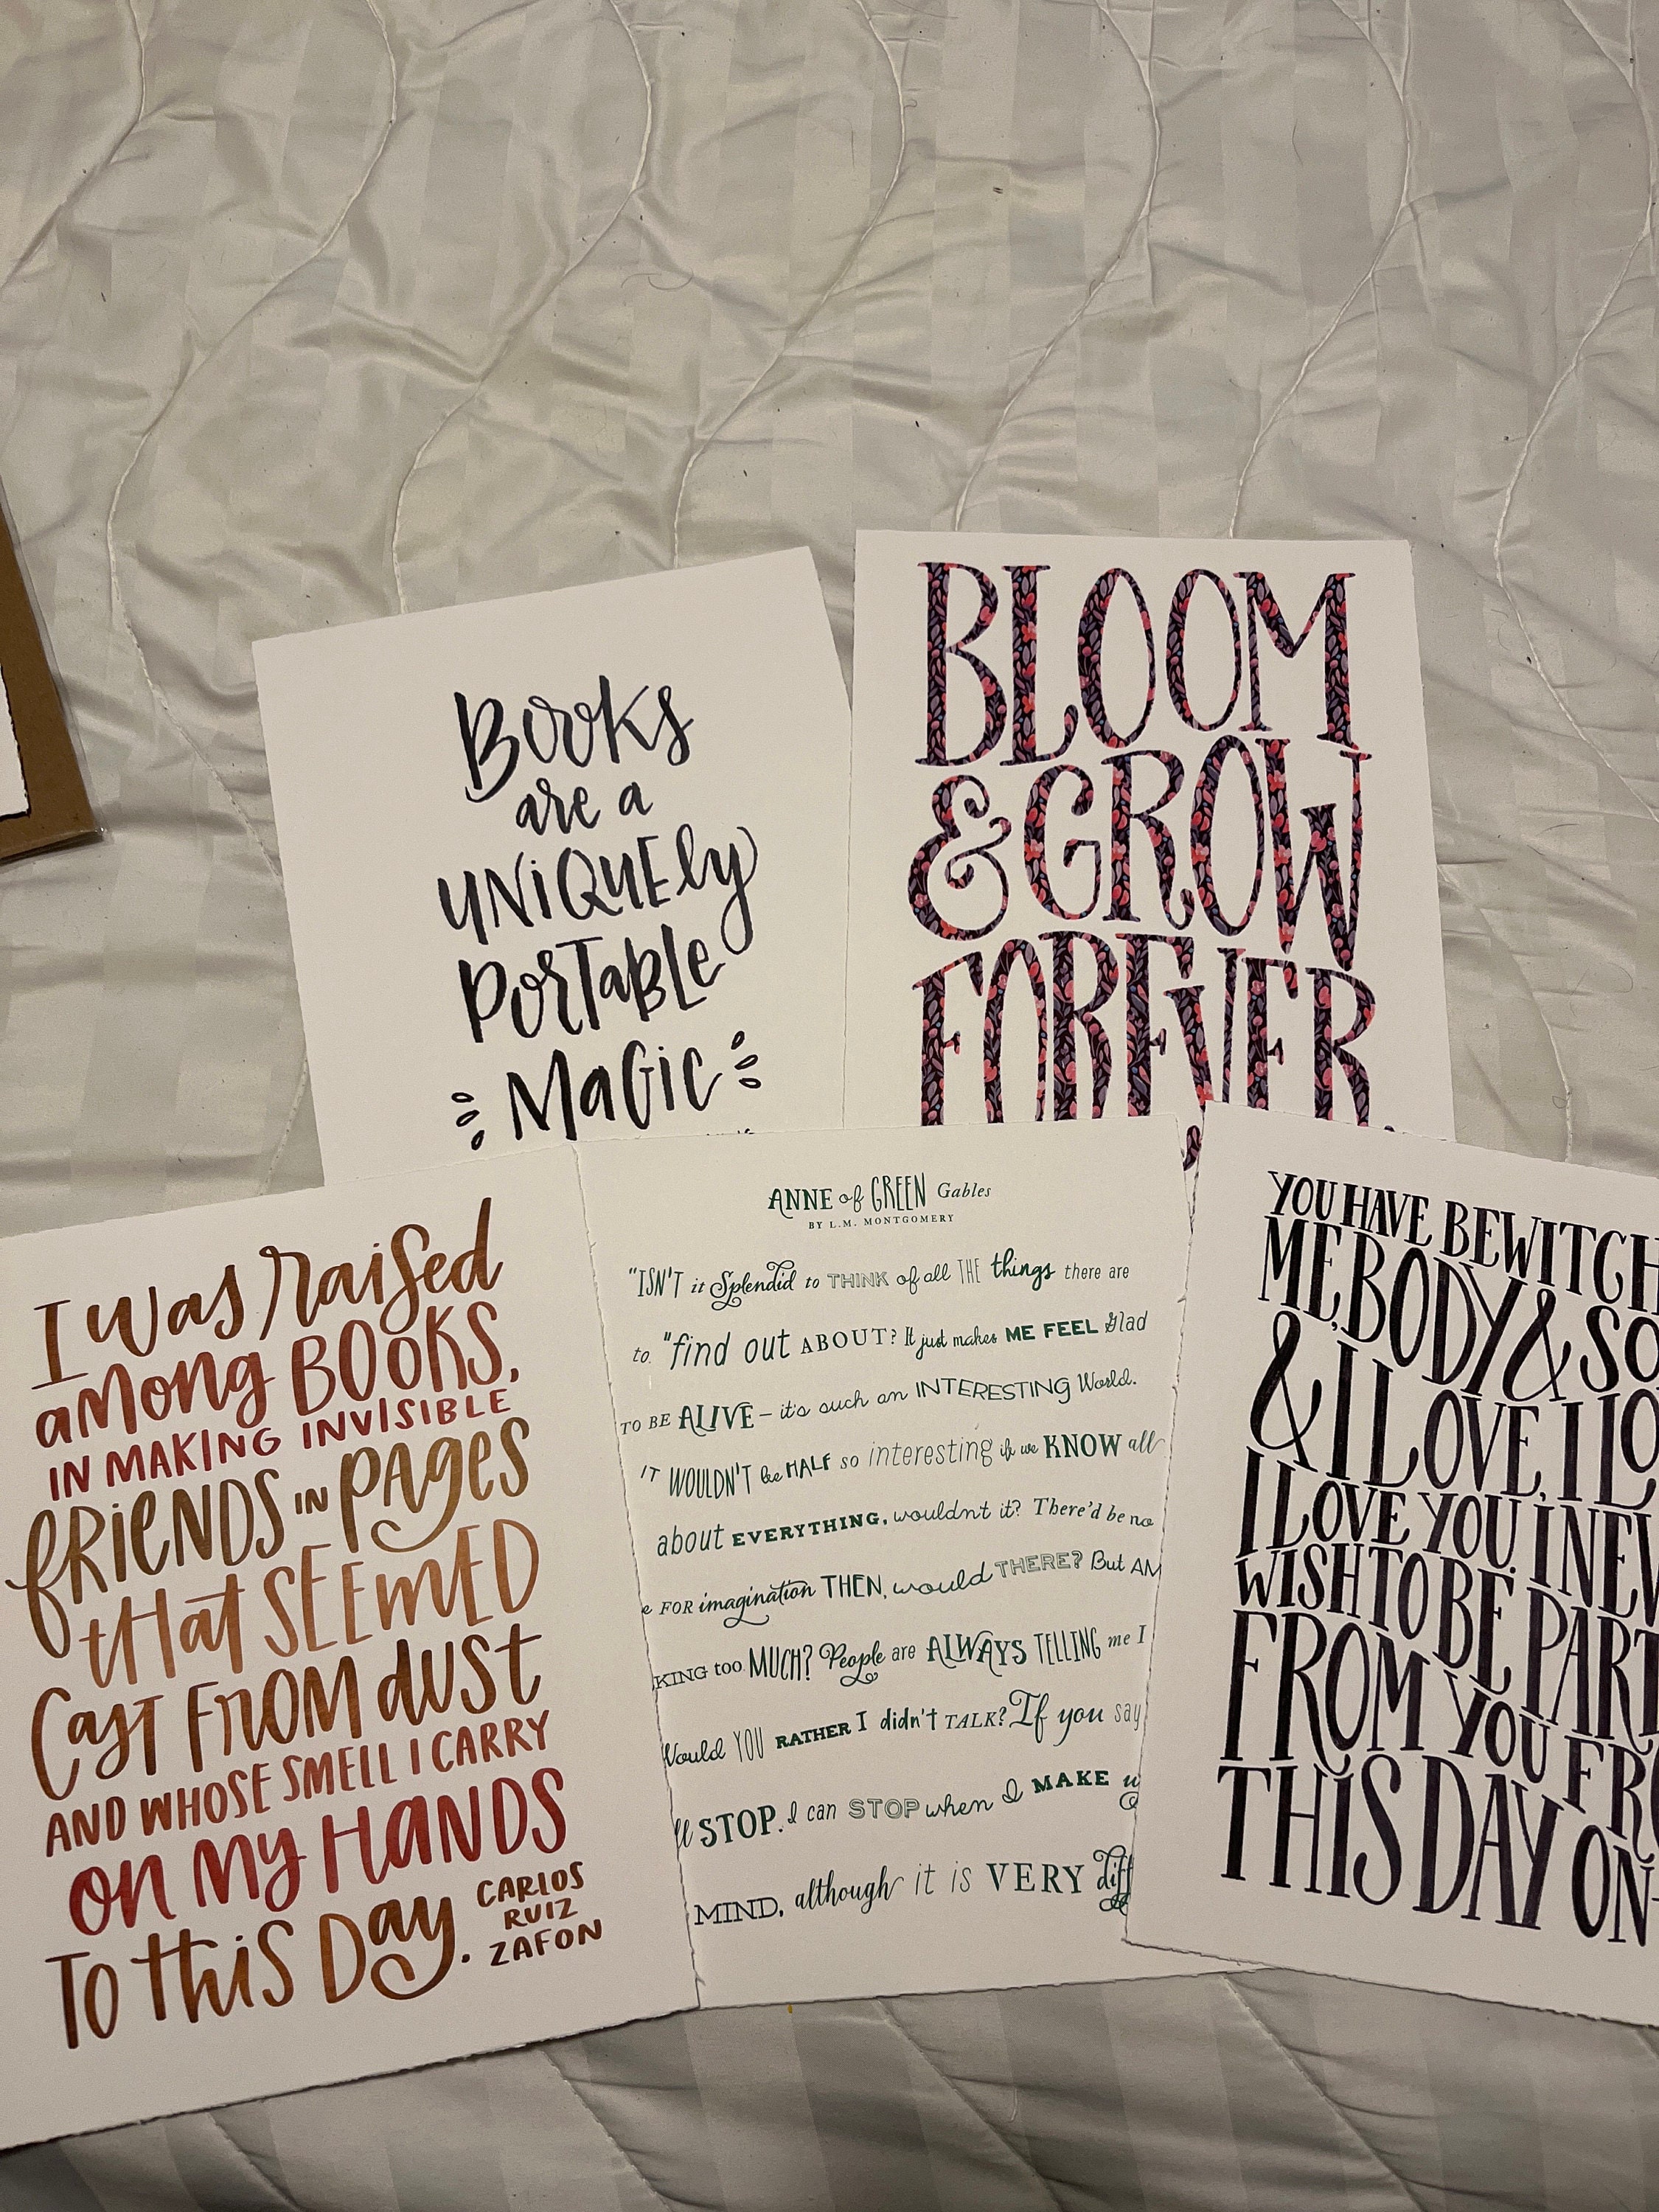 Books
are a
UNiQUEly
PORTaBLe
MaGic
BLOOM
& GROW
FOREVER.
I was raised
aMong BOOKS,
IN MAKING INVISIBLE
fRiENDS IN PAges
tHat SEEmED
Cast FROM dUST
AND WHOSE SMELL I CARRY
on My HaNDS
To tHiS Day.
CARLOS
RUIZ
ZAFON
ANNE of GREEN Gables
BY L.M. MONTGOMERY
"ISN'T it Splendid to THINK of all THE things there are
to "find out ABOUT? It just makes ME FEEL Glad
TO BE ALIVE – it's such an INTERESTING World.
IT WOULDN'T be HALF so interesting if we KNOW all
about EVERYTHING, wouldn't it? There'd be no
FOR imagination THEN, would THERE? But AM
KING too MUCH? People are ALWAYS TELLING me I
Would YOU RATHER I didn't TALK? If you say
ll STOP. I can STOP when I MAKE u
MIND, although it is VERY diff
YOU HAVE BEWITCH
ME, BODY & SO
& I LOVE, I LO
I LOVE YOU. I NEV
WISH TO BE PART
FROM YOU FRO
THIS DAY ON